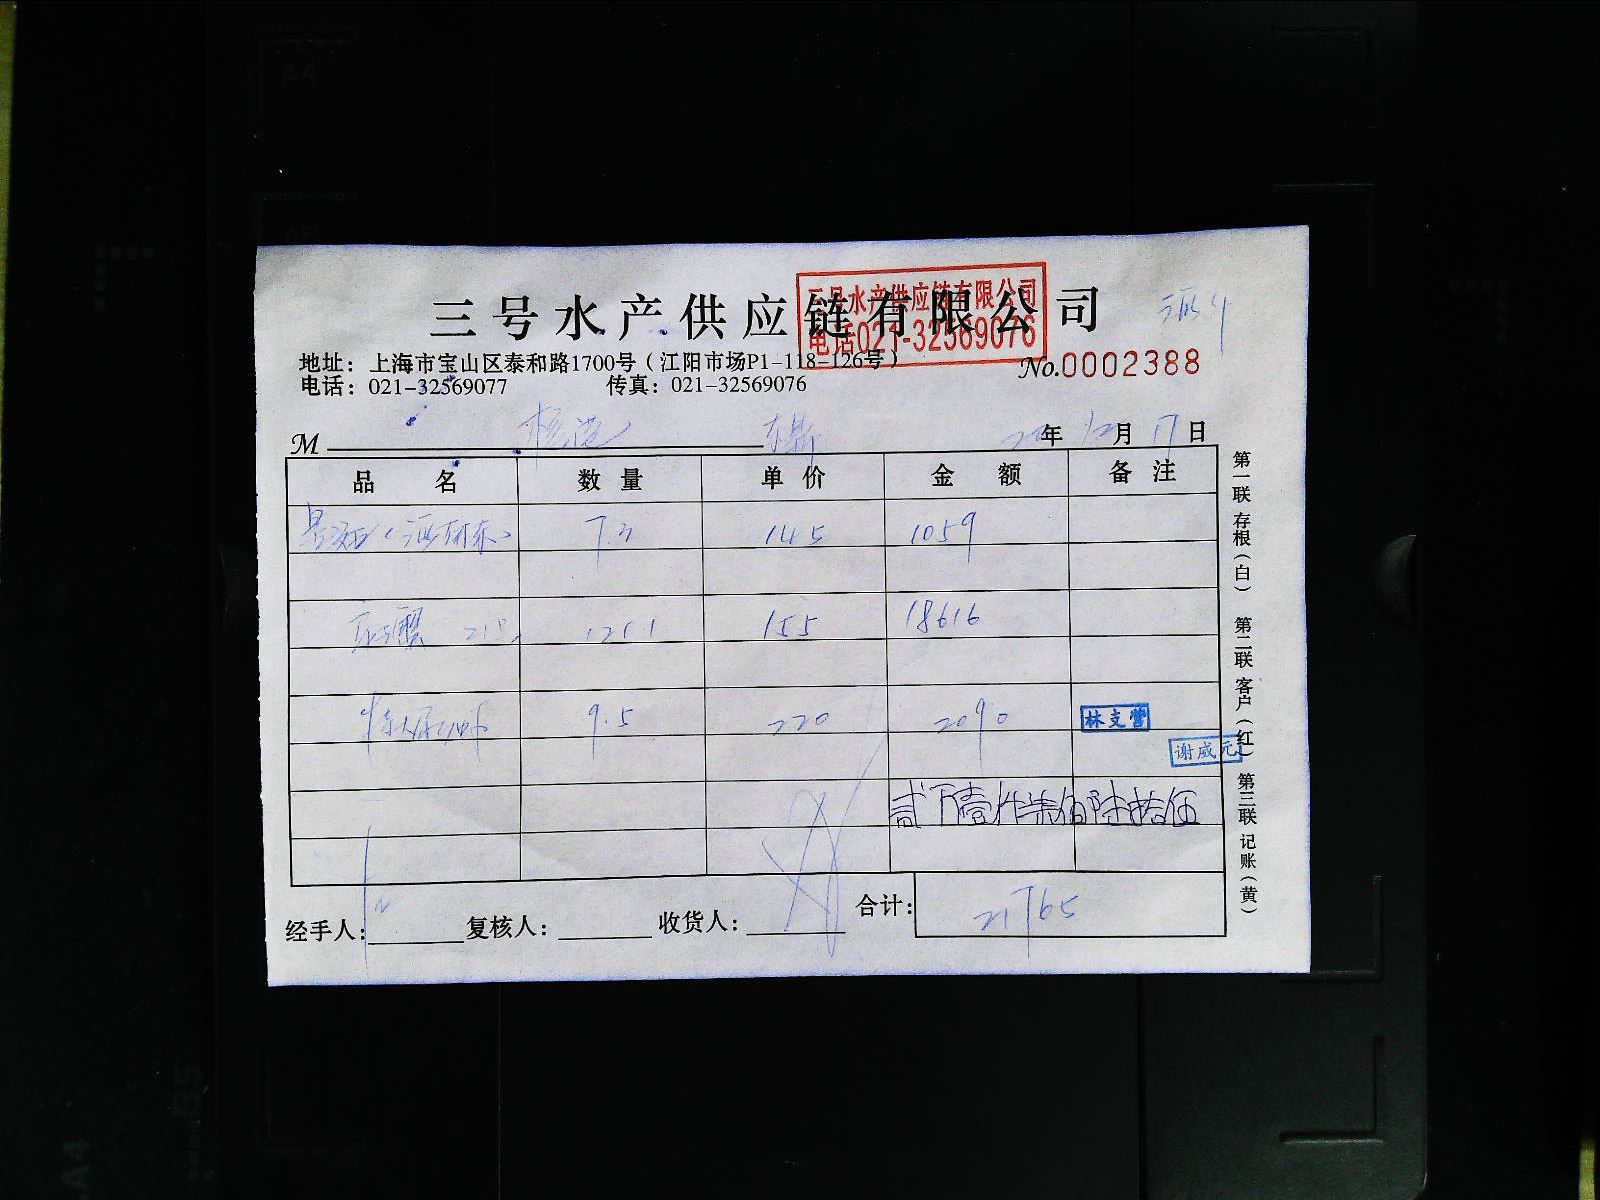 三号水产供应链有限公司
三号水产供应链有限公司
电话021-32569076
地址：上海市宝山区泰和路1700号（江阳市场P1-118-126号）
No.0002388
电话：021-32569077 传真：021-32569076
M 年 12月 17日
品名 数量 单价 金额 备注
7.3 145 1059
155 18616
9.5 220 2090
林支营
谢威元
贰万壹仟柒佰陆拾伍
经手人： 复核人： 收货人： 合计： 21765
第一联 存根（白） 第二联 客户（红） 第三联 记账（黄）